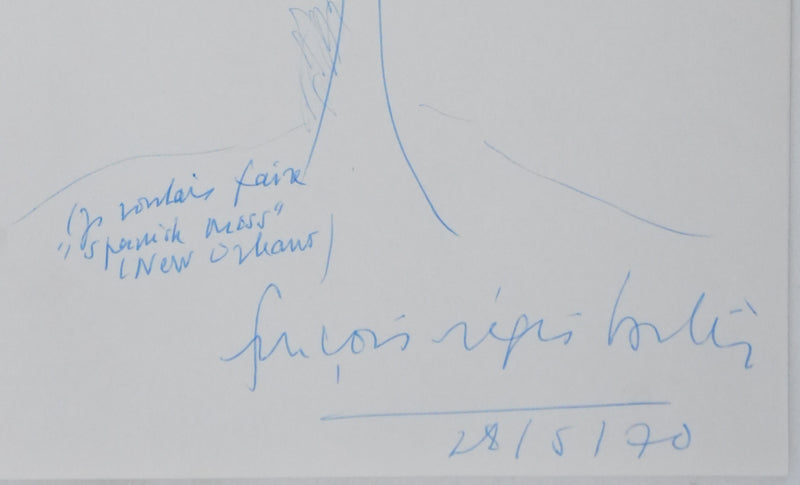 (Je voulais faire
"Spanish moss"
(New Orleans)
françois régis bastide
28/5/70